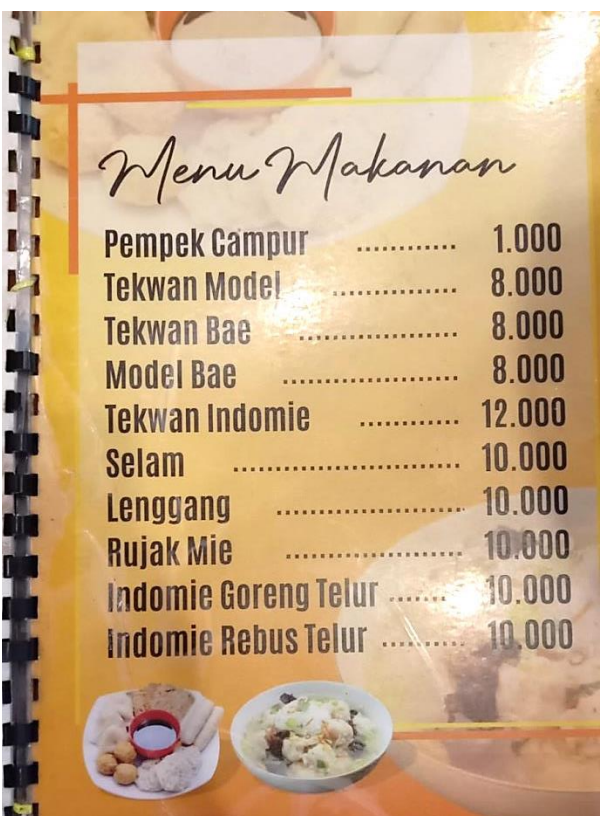 Menu Makanan
Pempek Campur ............ 1.000
Tekwan Model ............... 8.000
Tekwan Bae ................... 8.000
Model Bae ..................... 8.000
Tekwan Indomie ............ 12.000
Selam ........................... 10.000
Lenggang ...................... 10.000
Rujak Mie ..................... 10.000
Indomie Goreng Telur ....... 10.000
Indomie Rebus Telur .......... 10.000